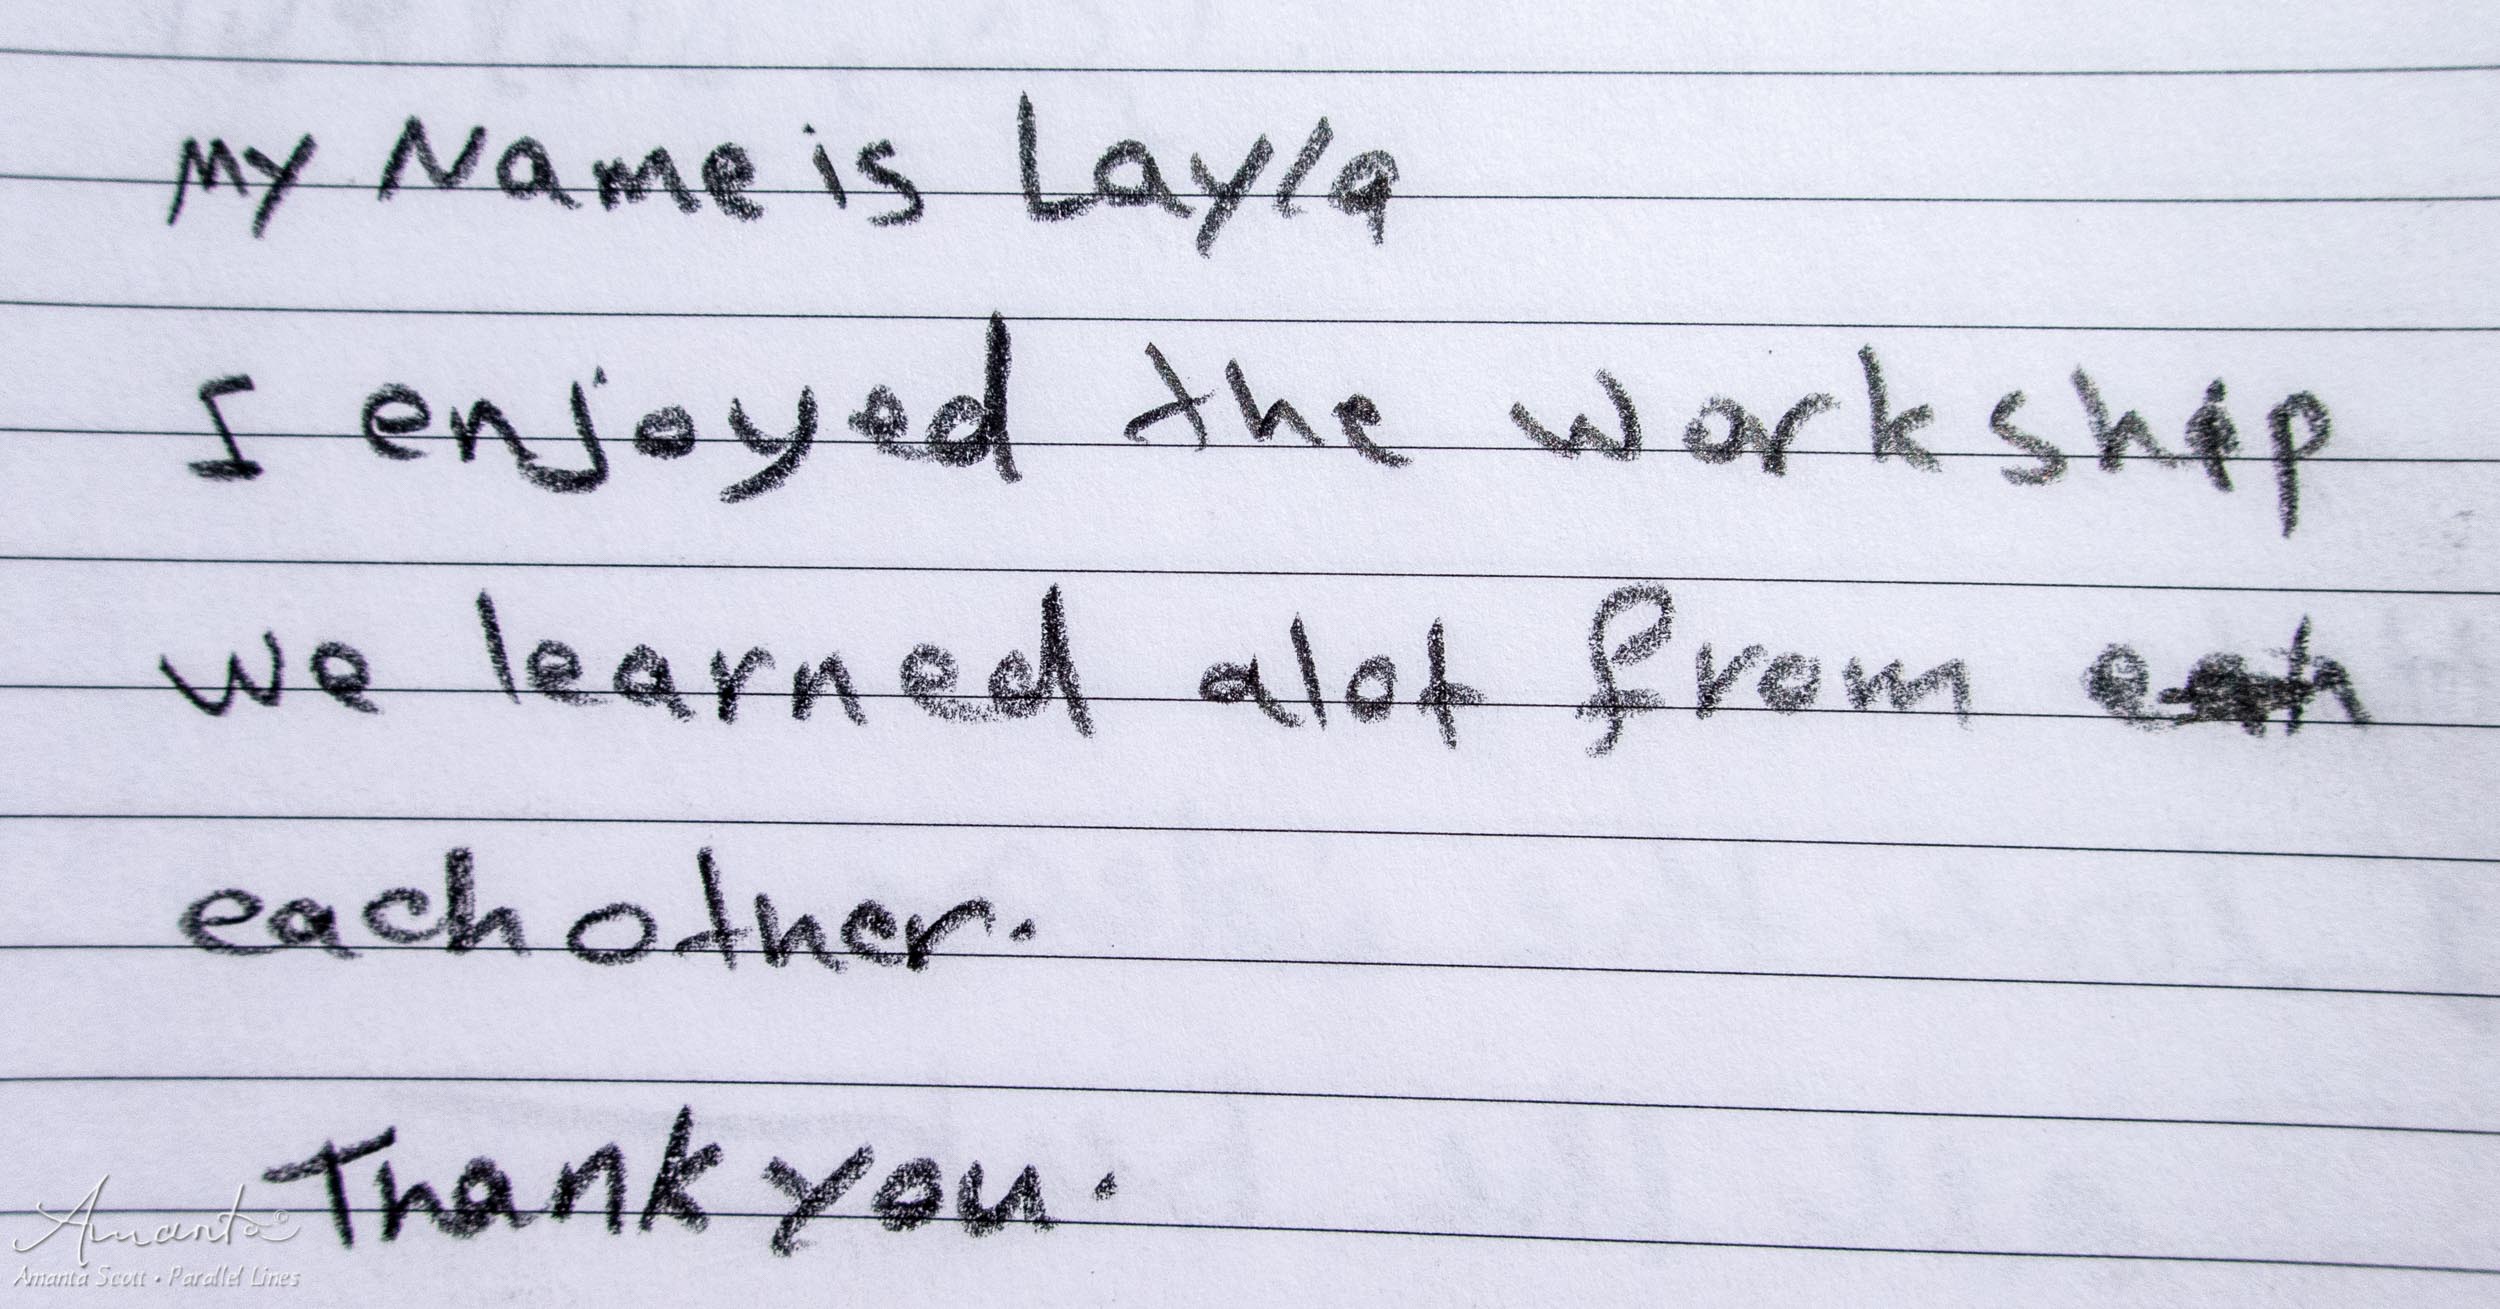 My Name is Layla
I enjoyed the workship
we learned alot from
each other.
Thank you.
Amanta©
Amanta Scott • Parallel Lines